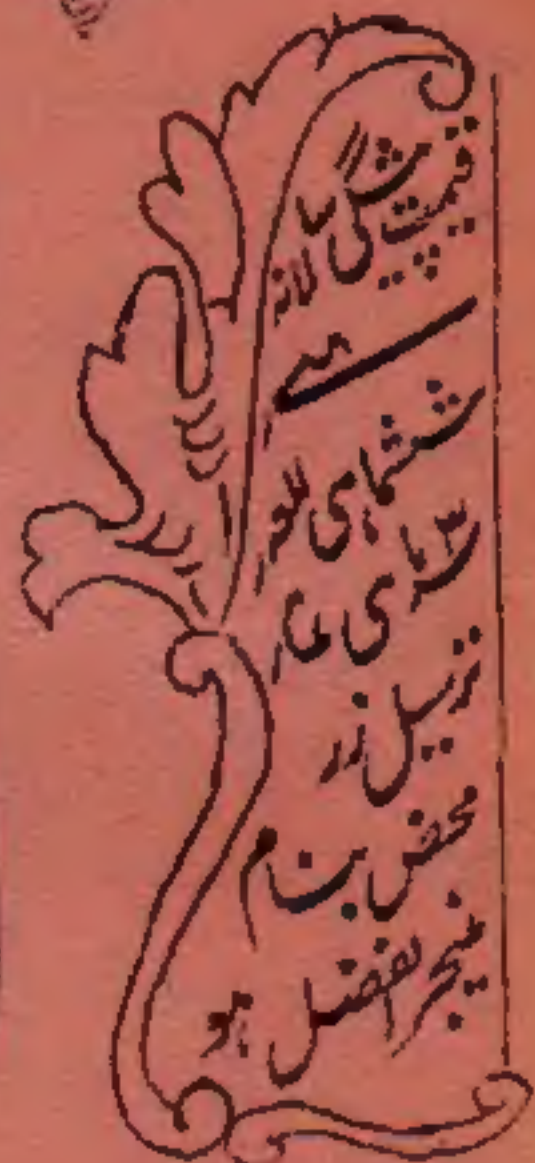 قیمت پیشگی سالانہ
ششماہی للعہ
۳ ماہی عار
ترسیل زر
محض بنام
منیجر الفضل ہو